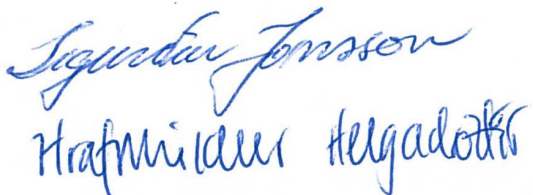 Sigurður Jónsson
Hrafnhildur Helgadóttir